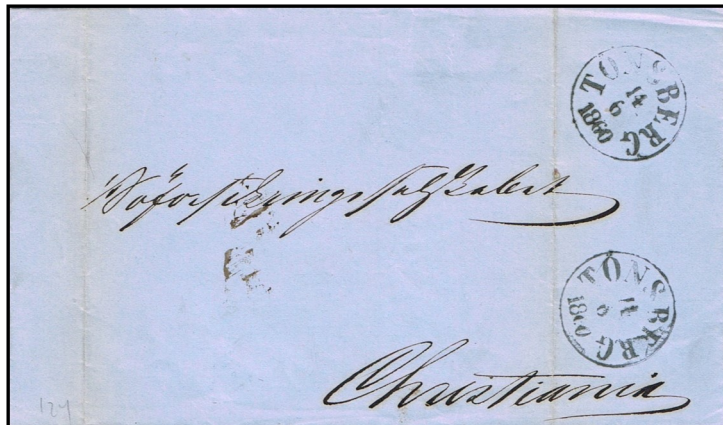 TÖNSBERG
14
6
1860
"Søforsikringsselskabet
TÖNSBERG
14
6
1860
Christiania
124